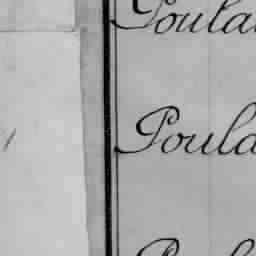 Poula
Poula